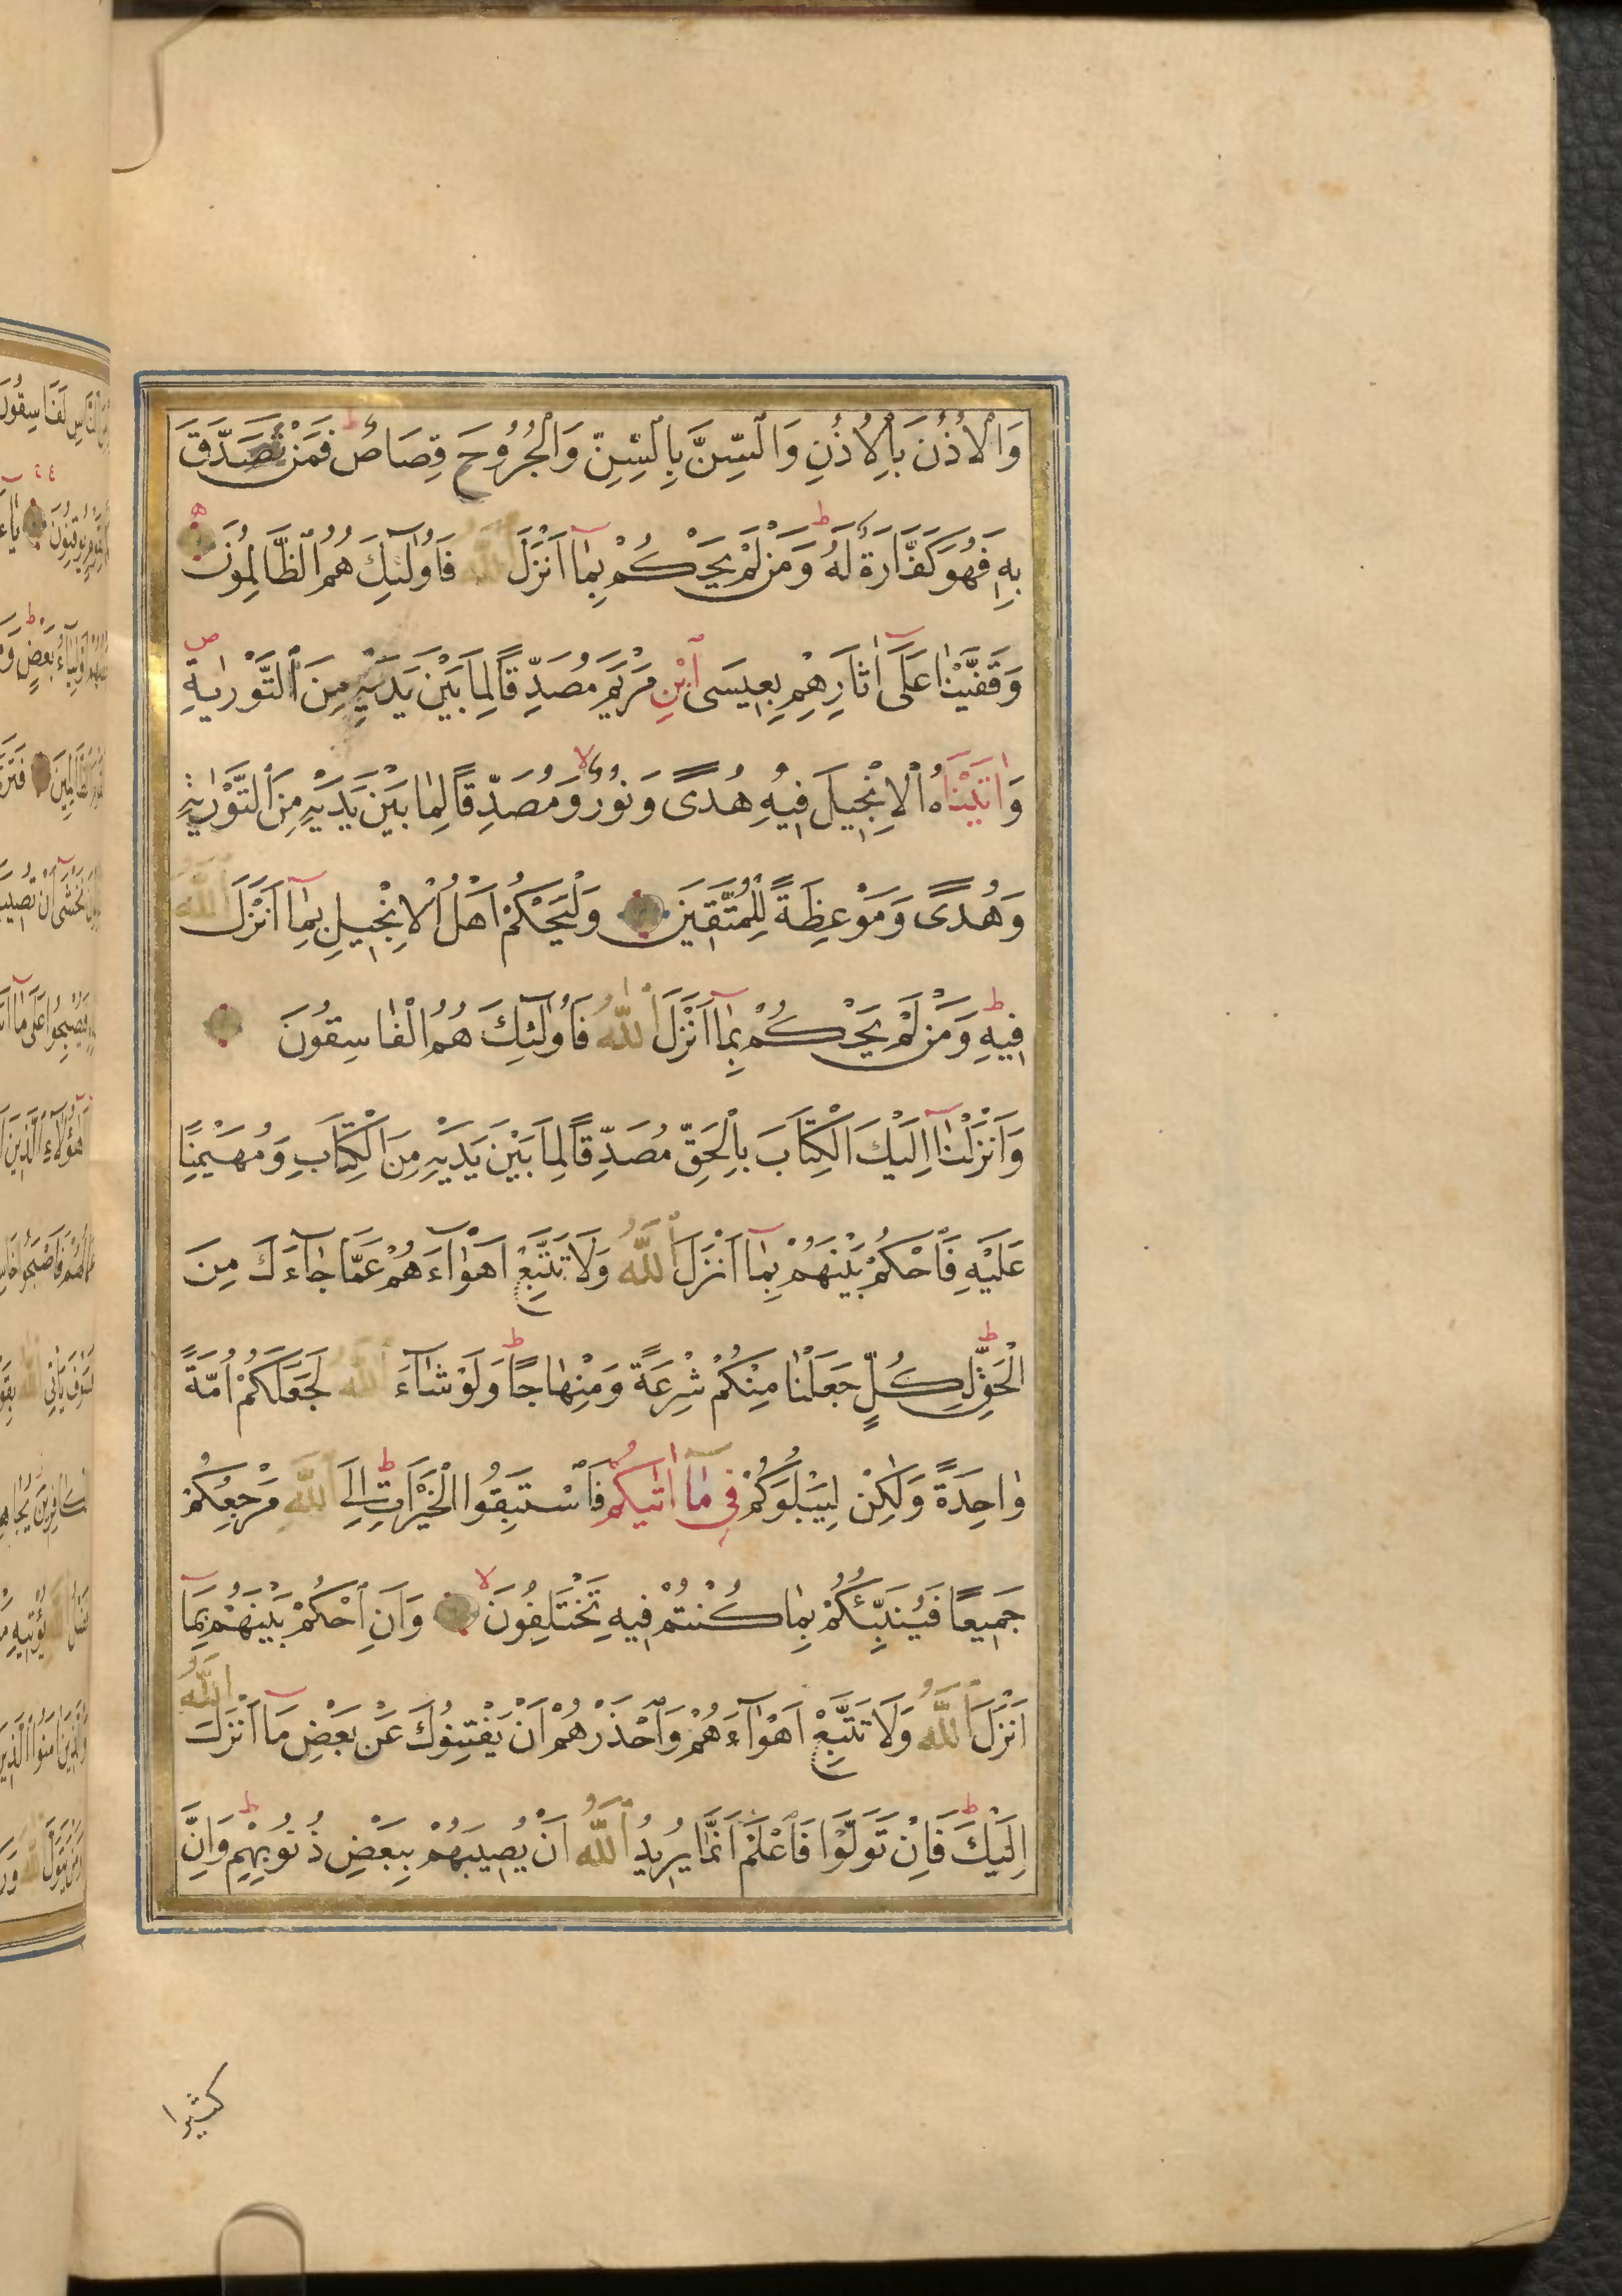 وَالْاُذُنَ بِالْاُذُنِ وَالسِّنَّ بِالسِّنِّ وَالْجُرُوحَ قِصَاصٌ ط فَمَنْ تَصَدَّقَ
بِهٖ فَهُوَ كَفَّارَةٌ لَهُ ط وَمَنْ لَمْ يَحْكُمْ بِمَٓا اَنْزَلَ اللّٰهُ فَاُولٰٓئِكَ هُمُ الظَّالِمُونَ ه
وَقَفَّيْنَا عَلٰٓى اٰثَارِهِمْ بِعِيسَى ابْنِ مَرْيَمَ مُصَدِّقًا لِمَا بَيْنَ يَدَيْهِ مِنَ التَّوْرٰيةِ ص
وَاٰتَيْنَاهُ الْاِنْجِيلَ فِيهِ هُدًى وَنُورٌ لا وَمُصَدِّقًا لِمَا بَيْنَ يَدَيْهِ مِنَ التَّوْرٰيةِ
وَهُدًى وَمَوْعِظَةً لِلْمُتَّقِينَ وَلْيَحْكُمْ اَهْلُ الْاِنْجِيلِ بِمَٓا اَنْزَلَ اللّٰهُ
فِيهِ ط وَمَنْ لَمْ يَحْكُمْ بِمَٓا اَنْزَلَ اللّٰهُ فَاُولٰٓئِكَ هُمُ الْفَاسِقُونَ
وَاَنْزَلْنَٓا اِلَيْكَ الْكِتَابَ بِالْحَقِّ مُصَدِّقًا لِمَا بَيْنَ يَدَيْهِ مِنَ الْكِتَابِ وَمُهَيْمِنًا
عَلَيْهِ فَاحْكُمْ بَيْنَهُمْ بِمَٓا اَنْزَلَ اللّٰهُ وَلَا تَتَّبِعْ اَهْوَٓاءَهُمْ عَمَّا جَٓاءَكَ مِنَ
الْحَقِّ ط لِكُلٍّ جَعَلْنَا مِنْكُمْ شِرْعَةً وَمِنْهَاجًا ط وَلَوْ شَٓاءَ اللّٰهُ لَجَعَلَكُمْ اُمَّةً
وَاحِدَةً وَلٰكِنْ لِيَبْلُوَكُمْ فِى مَٓا اٰتٰيكُمْ فَاسْتَبِقُوا الْخَيْرَاتِ ط اِلَى اللّٰهِ مَرْجِعُكُمْ
جَمِيعًا فَيُنَبِّئُكُمْ بِمَا كُنْتُمْ فِيهِ تَخْتَلِفُونَ لا وَاَنِ احْكُمْ بَيْنَهُمْ بِمَٓا
اَنْزَلَ اللّٰهُ وَلَا تَتَّبِعْ اَهْوَٓاءَهُمْ وَاحْذَرْهُمْ اَنْ يَفْتِنُوكَ عَنْ بَعْضِ مَٓا اَنْزَلَ اللّٰهُ
اِلَيْكَ ط فَاِنْ تَوَلَّوْا فَاعْلَمْ اَنَّمَا يُرِيدُ اللّٰهُ اَنْ يُصِيبَهُمْ بِبَعْضِ ذُنُوبِهِمْ ط وَاِنَّ
كثيرا